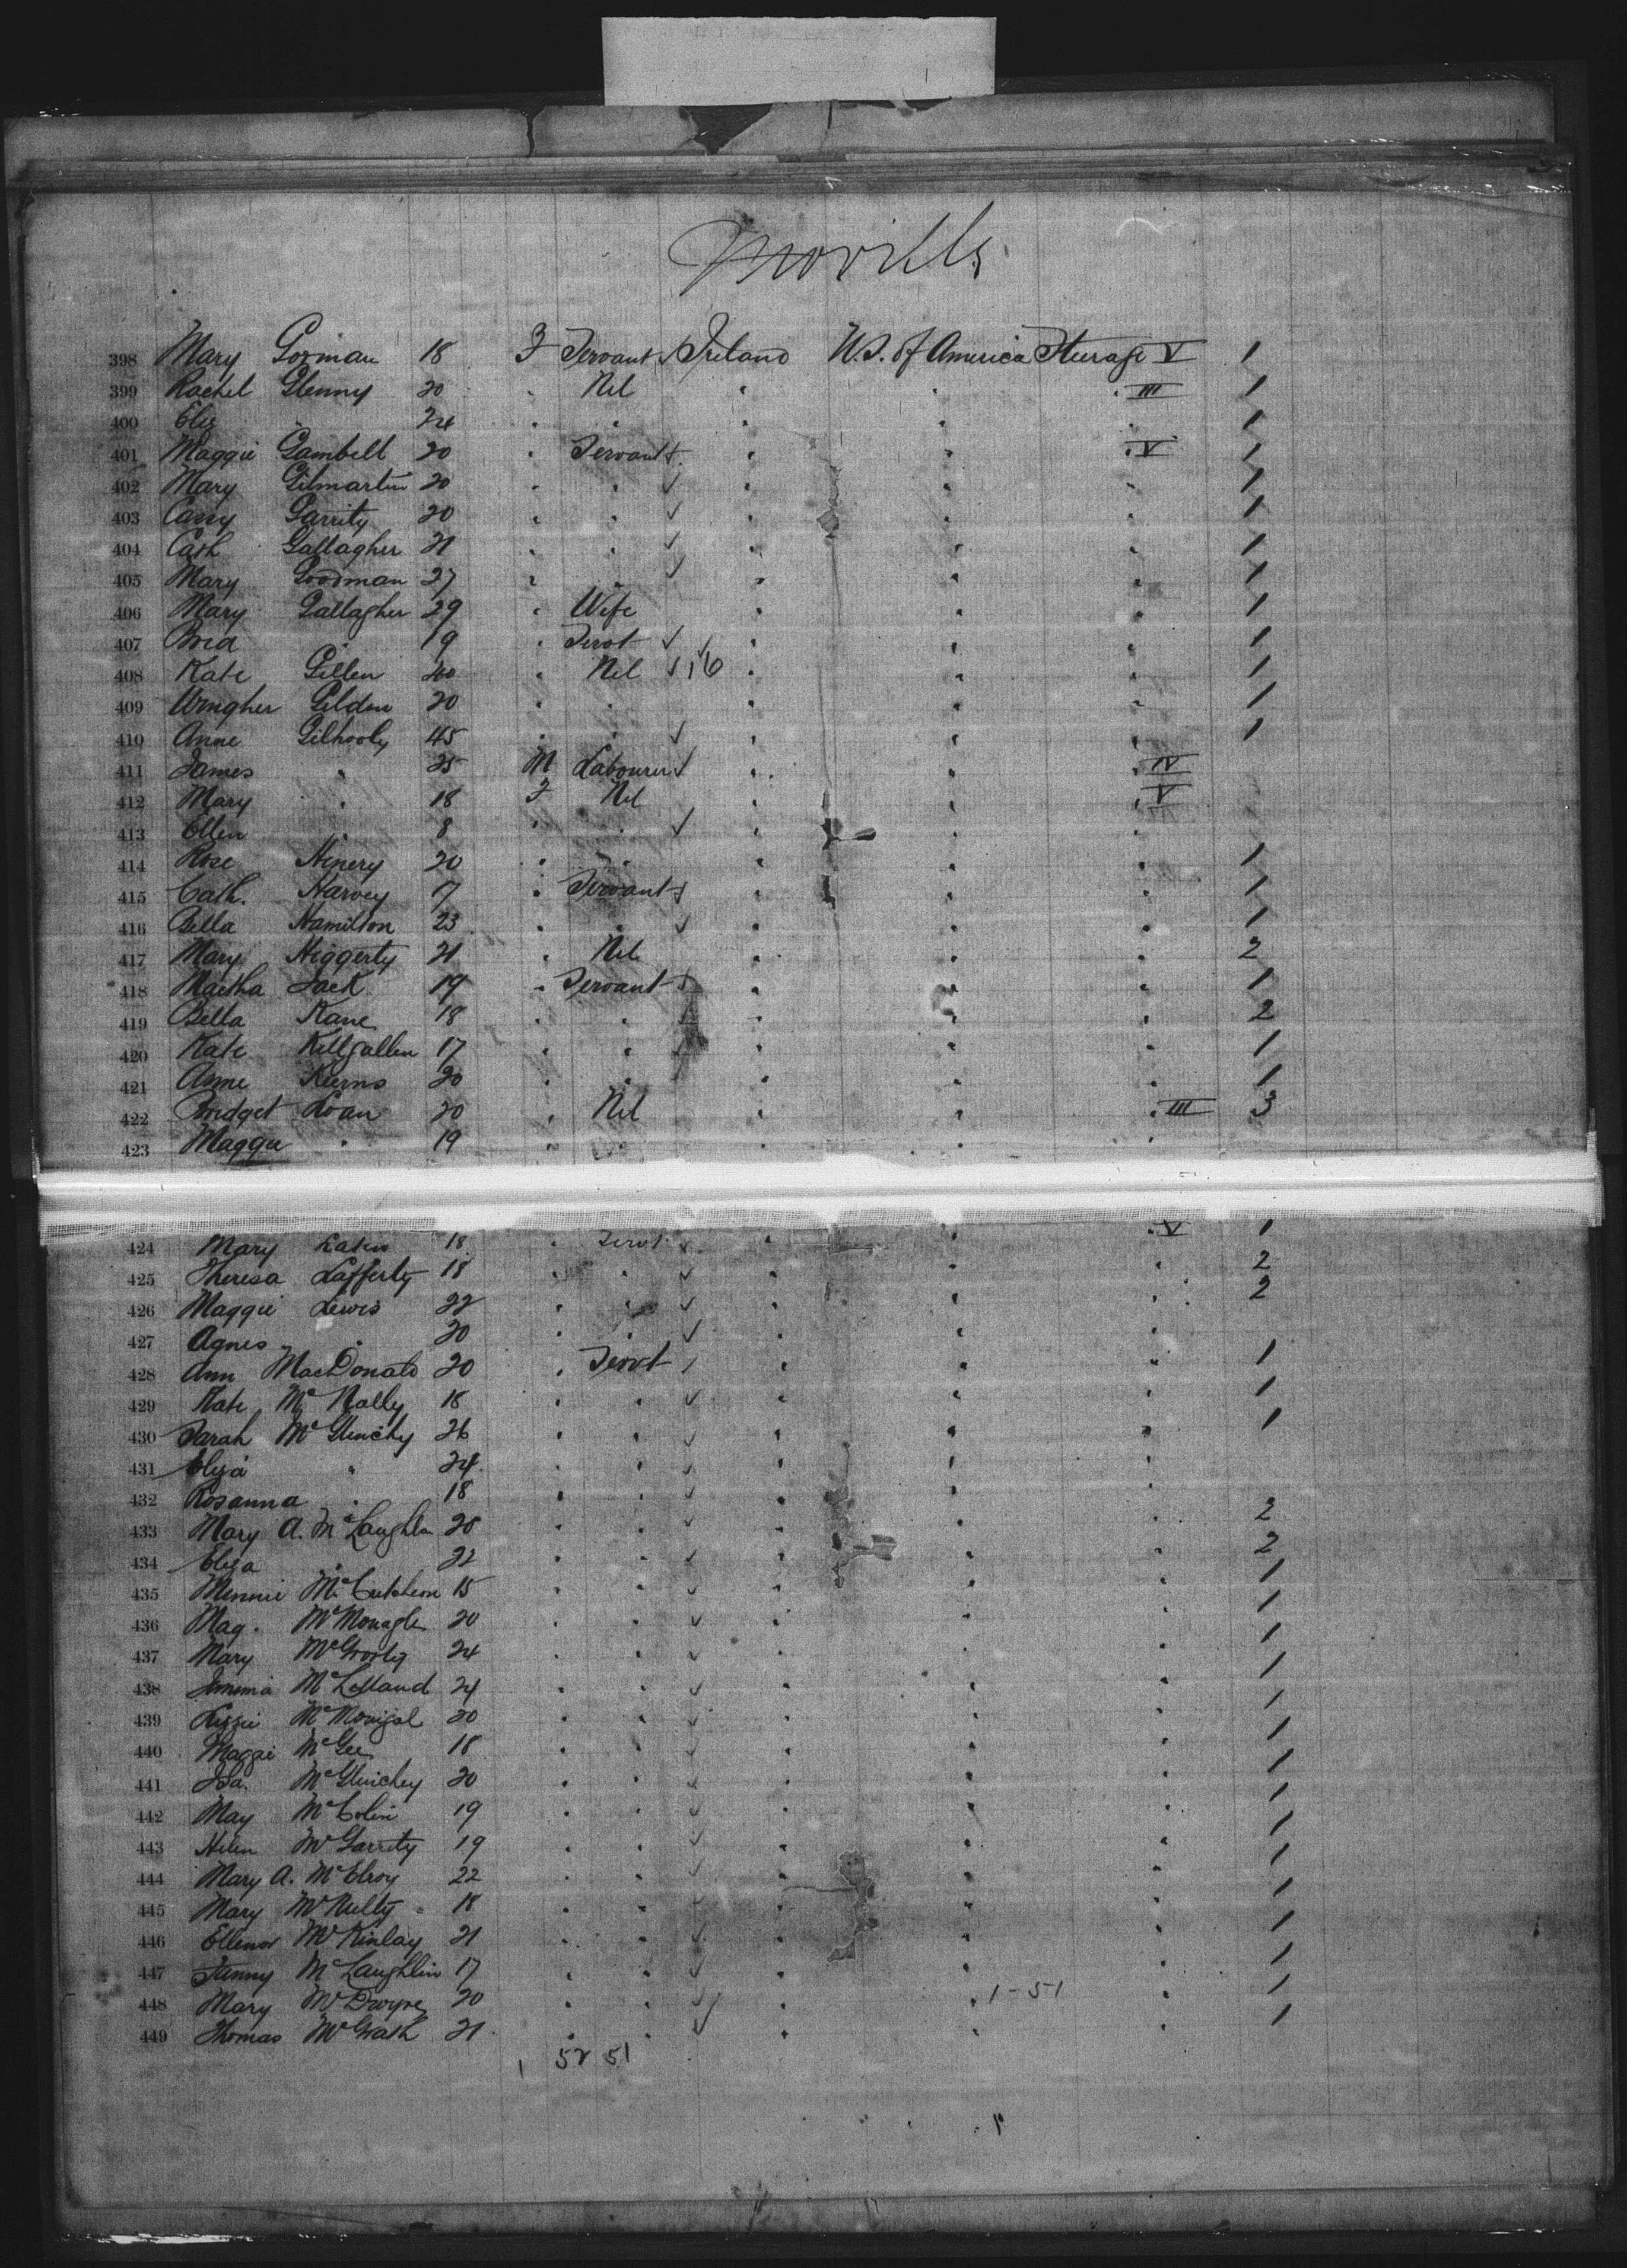 Moville
398 Mary Gorman 18 F Servant ✓ Ireland U.S. of America Steerage V 1
399 Rachel Glenny 20 " Nil " " " III 1
400 Eliz " 24 " " " " " 1
401 Maggie Gambell 20 " Servant ✓ " " " V 1
402 Mary Gilmartin 20 " " ✓ " " " 1
403 Cassy Garrity 20 " " ✓ " " " 1
404 Cath Gallagher 21 " " ✓ " " " 1
405 Mary Goodman 27 " " ✓ " " " 1
406 Mary Gallagher 29 " Wife " " " 1
407 Brid " 19 " Servt ✓ " " " 1
408 Kate Gillen 40 " Nil ✓ 16 " " " 1
409 Gildea 20 " " " " " 1
410 Anne Gilhooly 45 " " ✓ " " " 1
411 James " 25 M Labourer ✓ " " " IV
412 Mary " 18 F Nil " " " V
413 Ellen " 8 " " ✓ " " "
414 Rose Hinery 20 " " " " " 1
415 Cath. Harvey 17 " Servant ✓ " " " 1
416 Bella Hamilton 23 " " ✓ " " " 1
417 Mary Higgerty 21 " Nil " " " 2
418 Martha Jack 19 " Servant ✓ " " " 1
419 Bella Kane 18 " " ✓ " " " 2
420 Kate Killgallen 17 " " ✓ " " " 1
421 Anne Kerns 20 " " " " " 1
422 Bridget Loan 20 " Nil " " " III 3
423 Maggie " 19 " " " " "
424 Mary 18 " Servt ✓ " " " V 1
425 Theresa Lafferty 18 " " ✓ " " " 2
426 Maggie Lewis 22 " " ✓ " " " 2
427 Agnes " 20 " " ✓ " " "
428 Ann MacDonald 20 " Servt ✓ " " " 1
429 Kate McNally 18 " " ✓ " " " 1
430 Sarah McGlinchy 26 " " ✓ " " " 1
431 Eliza " 24 " " ✓ " " "
432 Rosanna " 18 " " ✓ " " "
433 Mary A. McLaughlin 20 " " ✓ " " " 2
434 Eliza " 22 " " ✓ " " " 2
435 Minnie McCutcheon 15 " " ✓ " " " 1
436 Mag. McMonagle 20 " " ✓ " " " 1
437 Mary 24 " " ✓ " " " 1
438 Jemima McLelland 24 " " ✓ " " " 1
439 Lizzie McMonigal 20 " " ✓ " " " 1
440 Maggie McGee 18 " " ✓ " " " 1
441 Isa. McGlinchey 20 " " ✓ " " " 1
442 May McColin 19 " " ✓ " " " 1
443 Helen McGarrity 19 " " ✓ " " " 1
444 Mary A. McElroy 22 " " ✓ " " " 1
445 Mary McNulty 18 " " ✓ " " " 1
446 Ellenor McKinlay 21 " " ✓ " " " 1
447 Fanny McLaughlin 17 " " ✓ " " " 1
448 Mary McDwyre 20 " " ✓ " " 1-51 " 1
449 Thomas McGrath 21 " " ✓ " " " 1
1 52 51